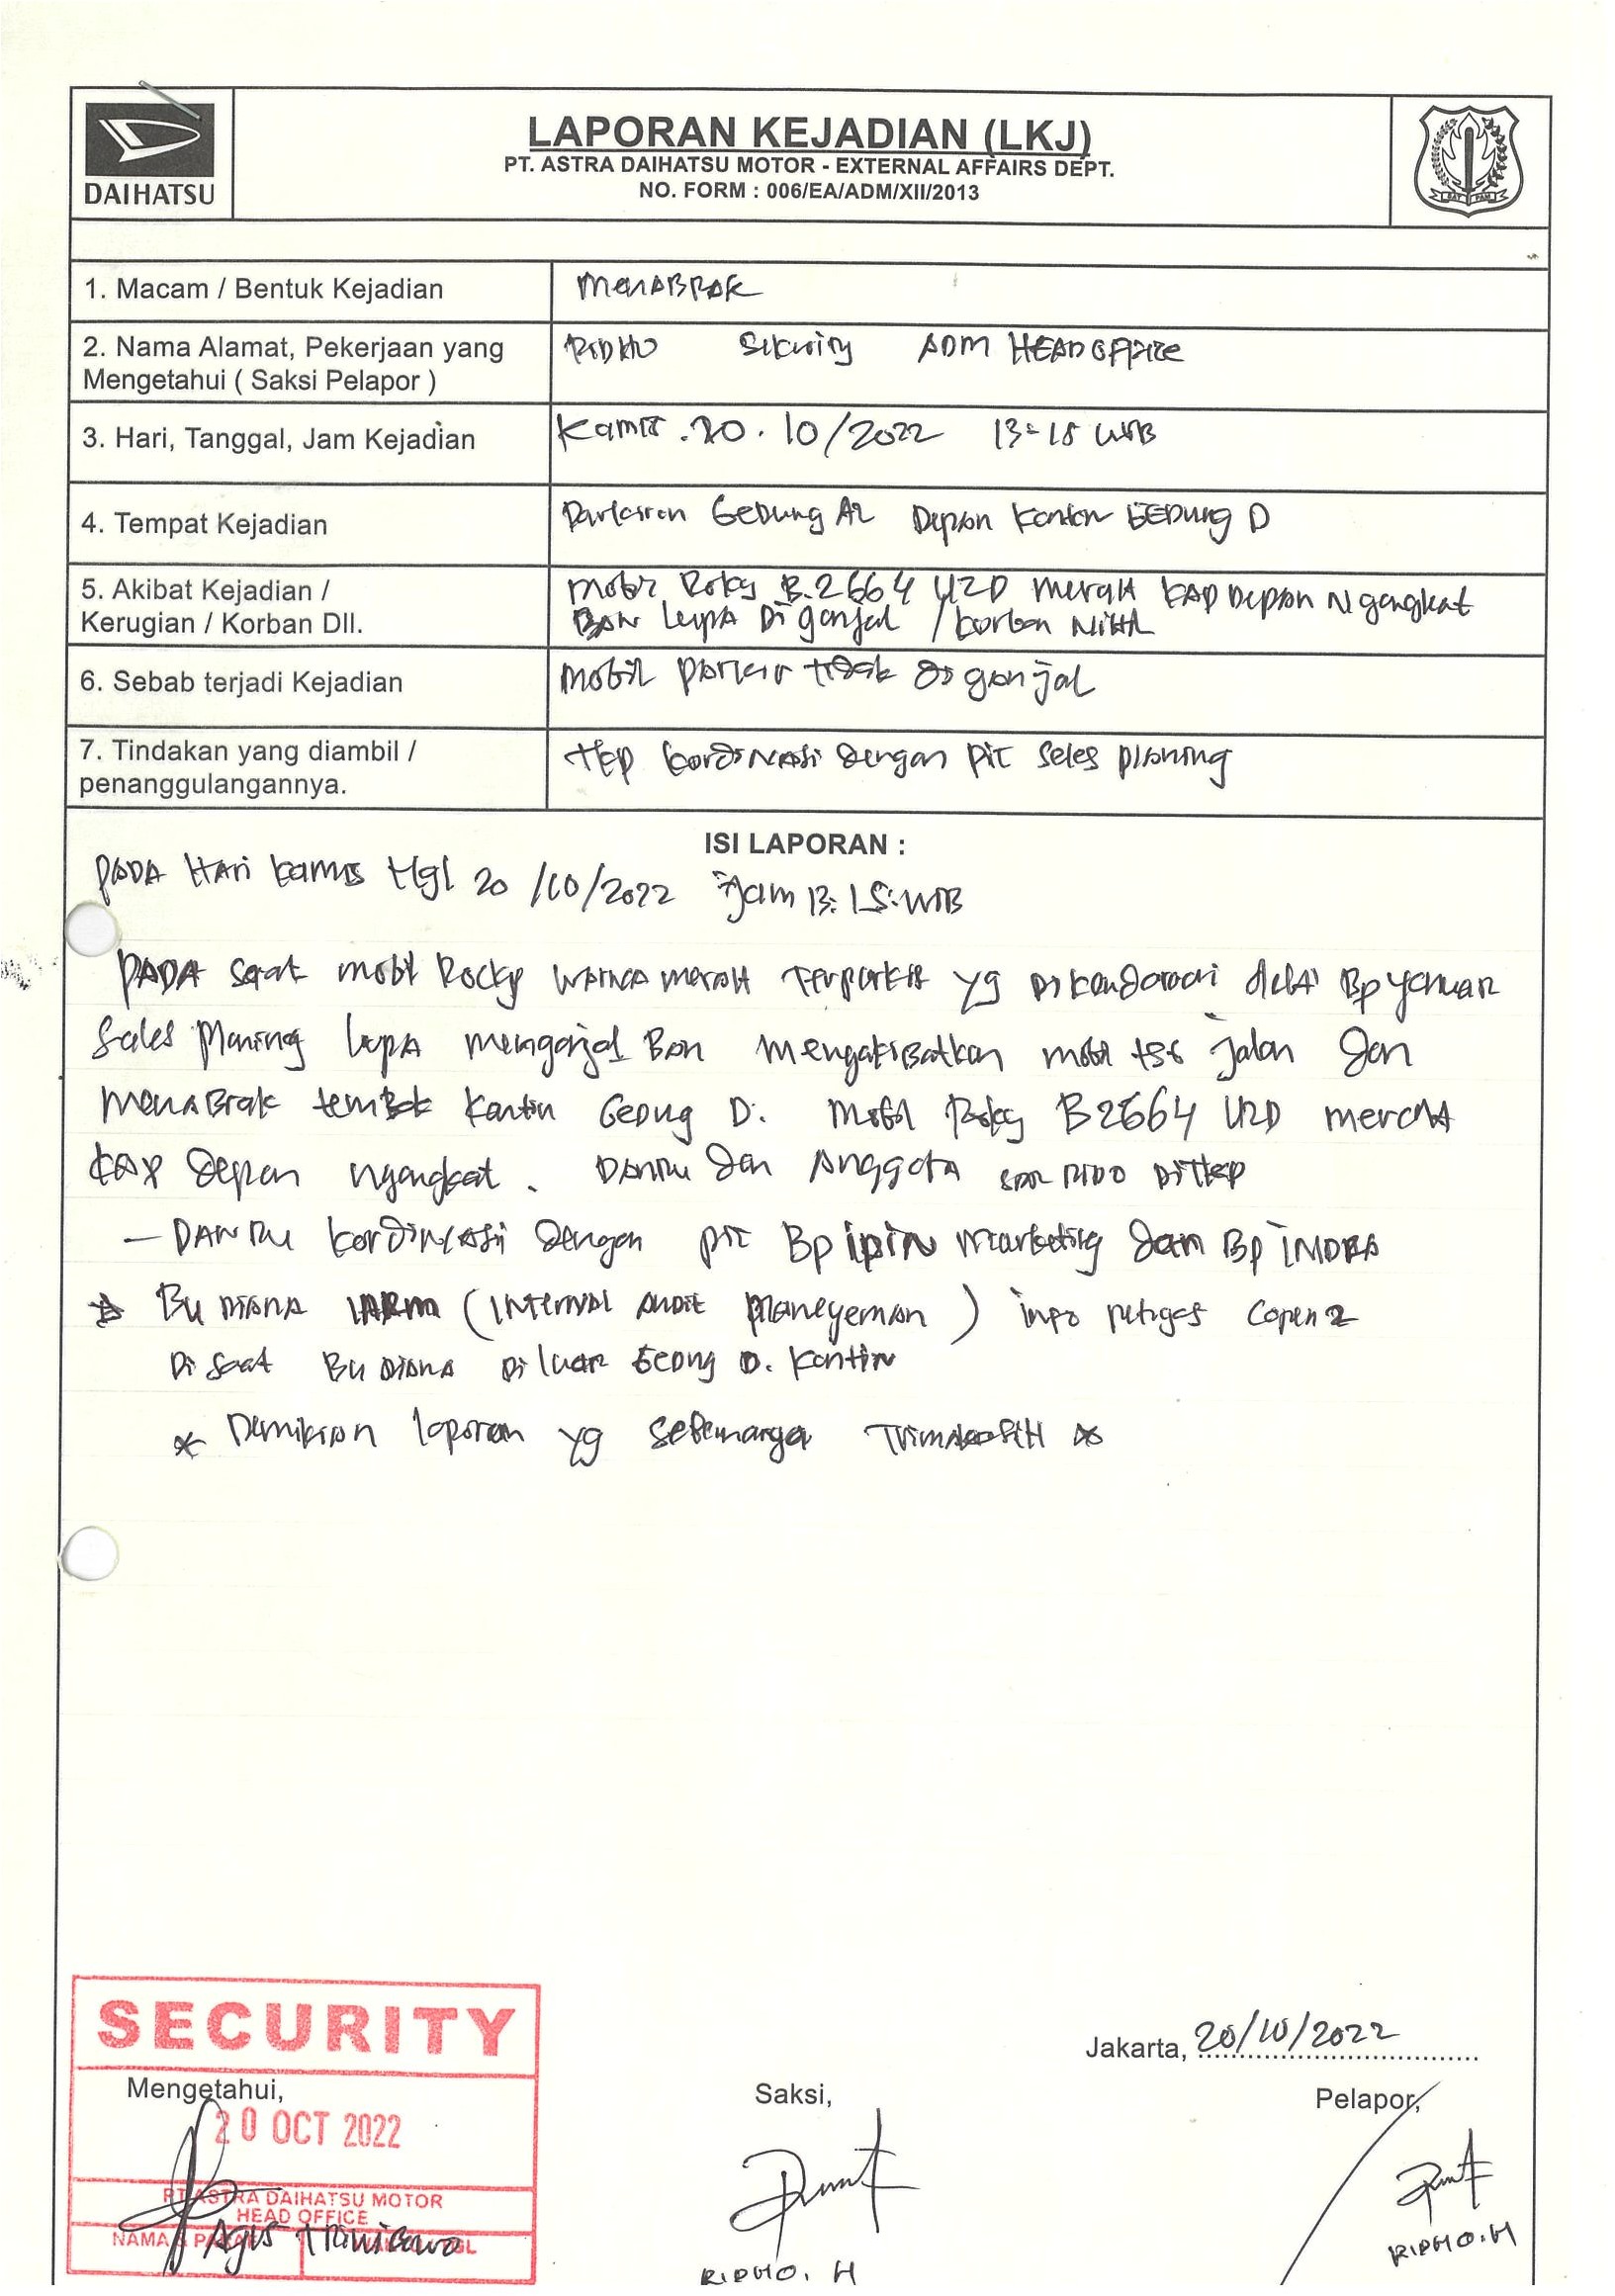 DAIHATSU
LAPORAN KEJADIAN (LKJ)
PT. ASTRA DAIHATSU MOTOR - EXTERNAL AFFAIRS DEPT.
NO. FORM : 006/EA/ADM/XII/2013
SAT PAM
1. Macam / Bentuk Kejadian
MenABRAK
2. Nama Alamat, Pekerjaan yang
Mengetahui ( Saksi Pelapor )
RIDHO Sikurity ADM HEAD OFFICE
3. Hari, Tanggal, Jam Kejadian
Kamis . 20 . 10/2022 13-15 WIB
4. Tempat Kejadian
Parkiran GEDung A2 Depan Kantin GEDung D
5. Akibat Kejadian /
Kerugian / Korban Dll.
mobil Roky B.2664 UZD meraH KAP Depan Ngangkat
BAN lupA Di ganjal / korban NiHil
6. Sebab terjadi Kejadian
mobil parkir tidak di ganjal
7. Tindakan yang diambil /
penanggulangannya.
tkp kordiNAsi dengan pic seles planing
ISI LAPORAN :
PADA HAri kamis tgl 20/10/2022 Jam 13:15:WIB
PADA saat mobil Rocky WArna meraH Terparkir yg Di kendarai Bp yanuar
Sales Planing lupA menganjal Ban mengakiBatkan mobil tsb jalan dan
menABrak tembok Kantin Gedung D. mobil Roky B2664 UZD meraH
KAP depan ngangkat . DANRu dan AnggotA SDR RIDO DiTkp
— DANRu kordinAsi dengan pic Bp ipin marketing dan Bp iNDRA
Bu DIANA IARM (INTernAl AuDit Maneyeman) info petugas Copen 2
Di saat Bu DIANA Di luar Gedng D. Kantin
* Demikian laporan yg sebenarnya TrimakasiH *
SECURITY
Jakarta, 20/10/2022
Mengetahui,
Saksi,
Pelapor,
20 OCT 2022
PT ASTRA DAIHATSU MOTOR
HEAD OFFICE
NAMA & PARAF
TGL
Agus Triwibowo
RIDHO. H
RIDHO. H